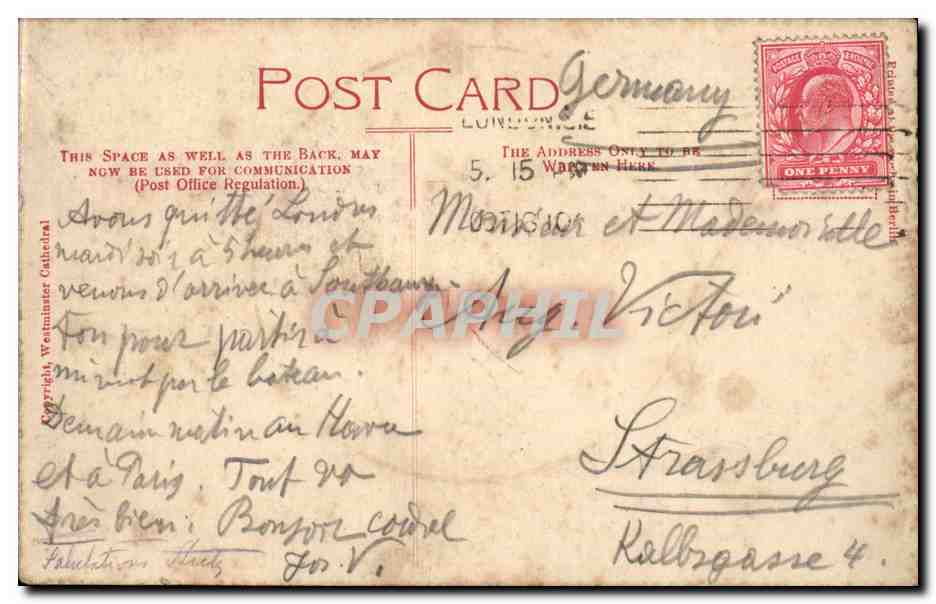 POST CARD
Germany
LONDON S.E
THIS SPACE AS WELL AS THE BACK, MAY
NOW BE USED FOR COMMUNICATION
(Post Office Regulation.)
THE ADDRESS ONLY TO BE
WRITTEN HERE
5. 15
POSTAGE REVENUE
ONE PENNY
Copyright, Westminster Cathedral
in Berlin
Avons quitté Londres
mardi soir à 5 heures et
venons d'arriver à Southamp-
ton pour partir à
minuit par le bateau.
Demain matin au Havre
et à Paris. Tout va
très bien. Bonjour cordial
Jos. V.
Salutations
Monsieur et Mademoiselle
Aug. Victori
Strassburg
Kalbsgasse 4.
CPAPHIL